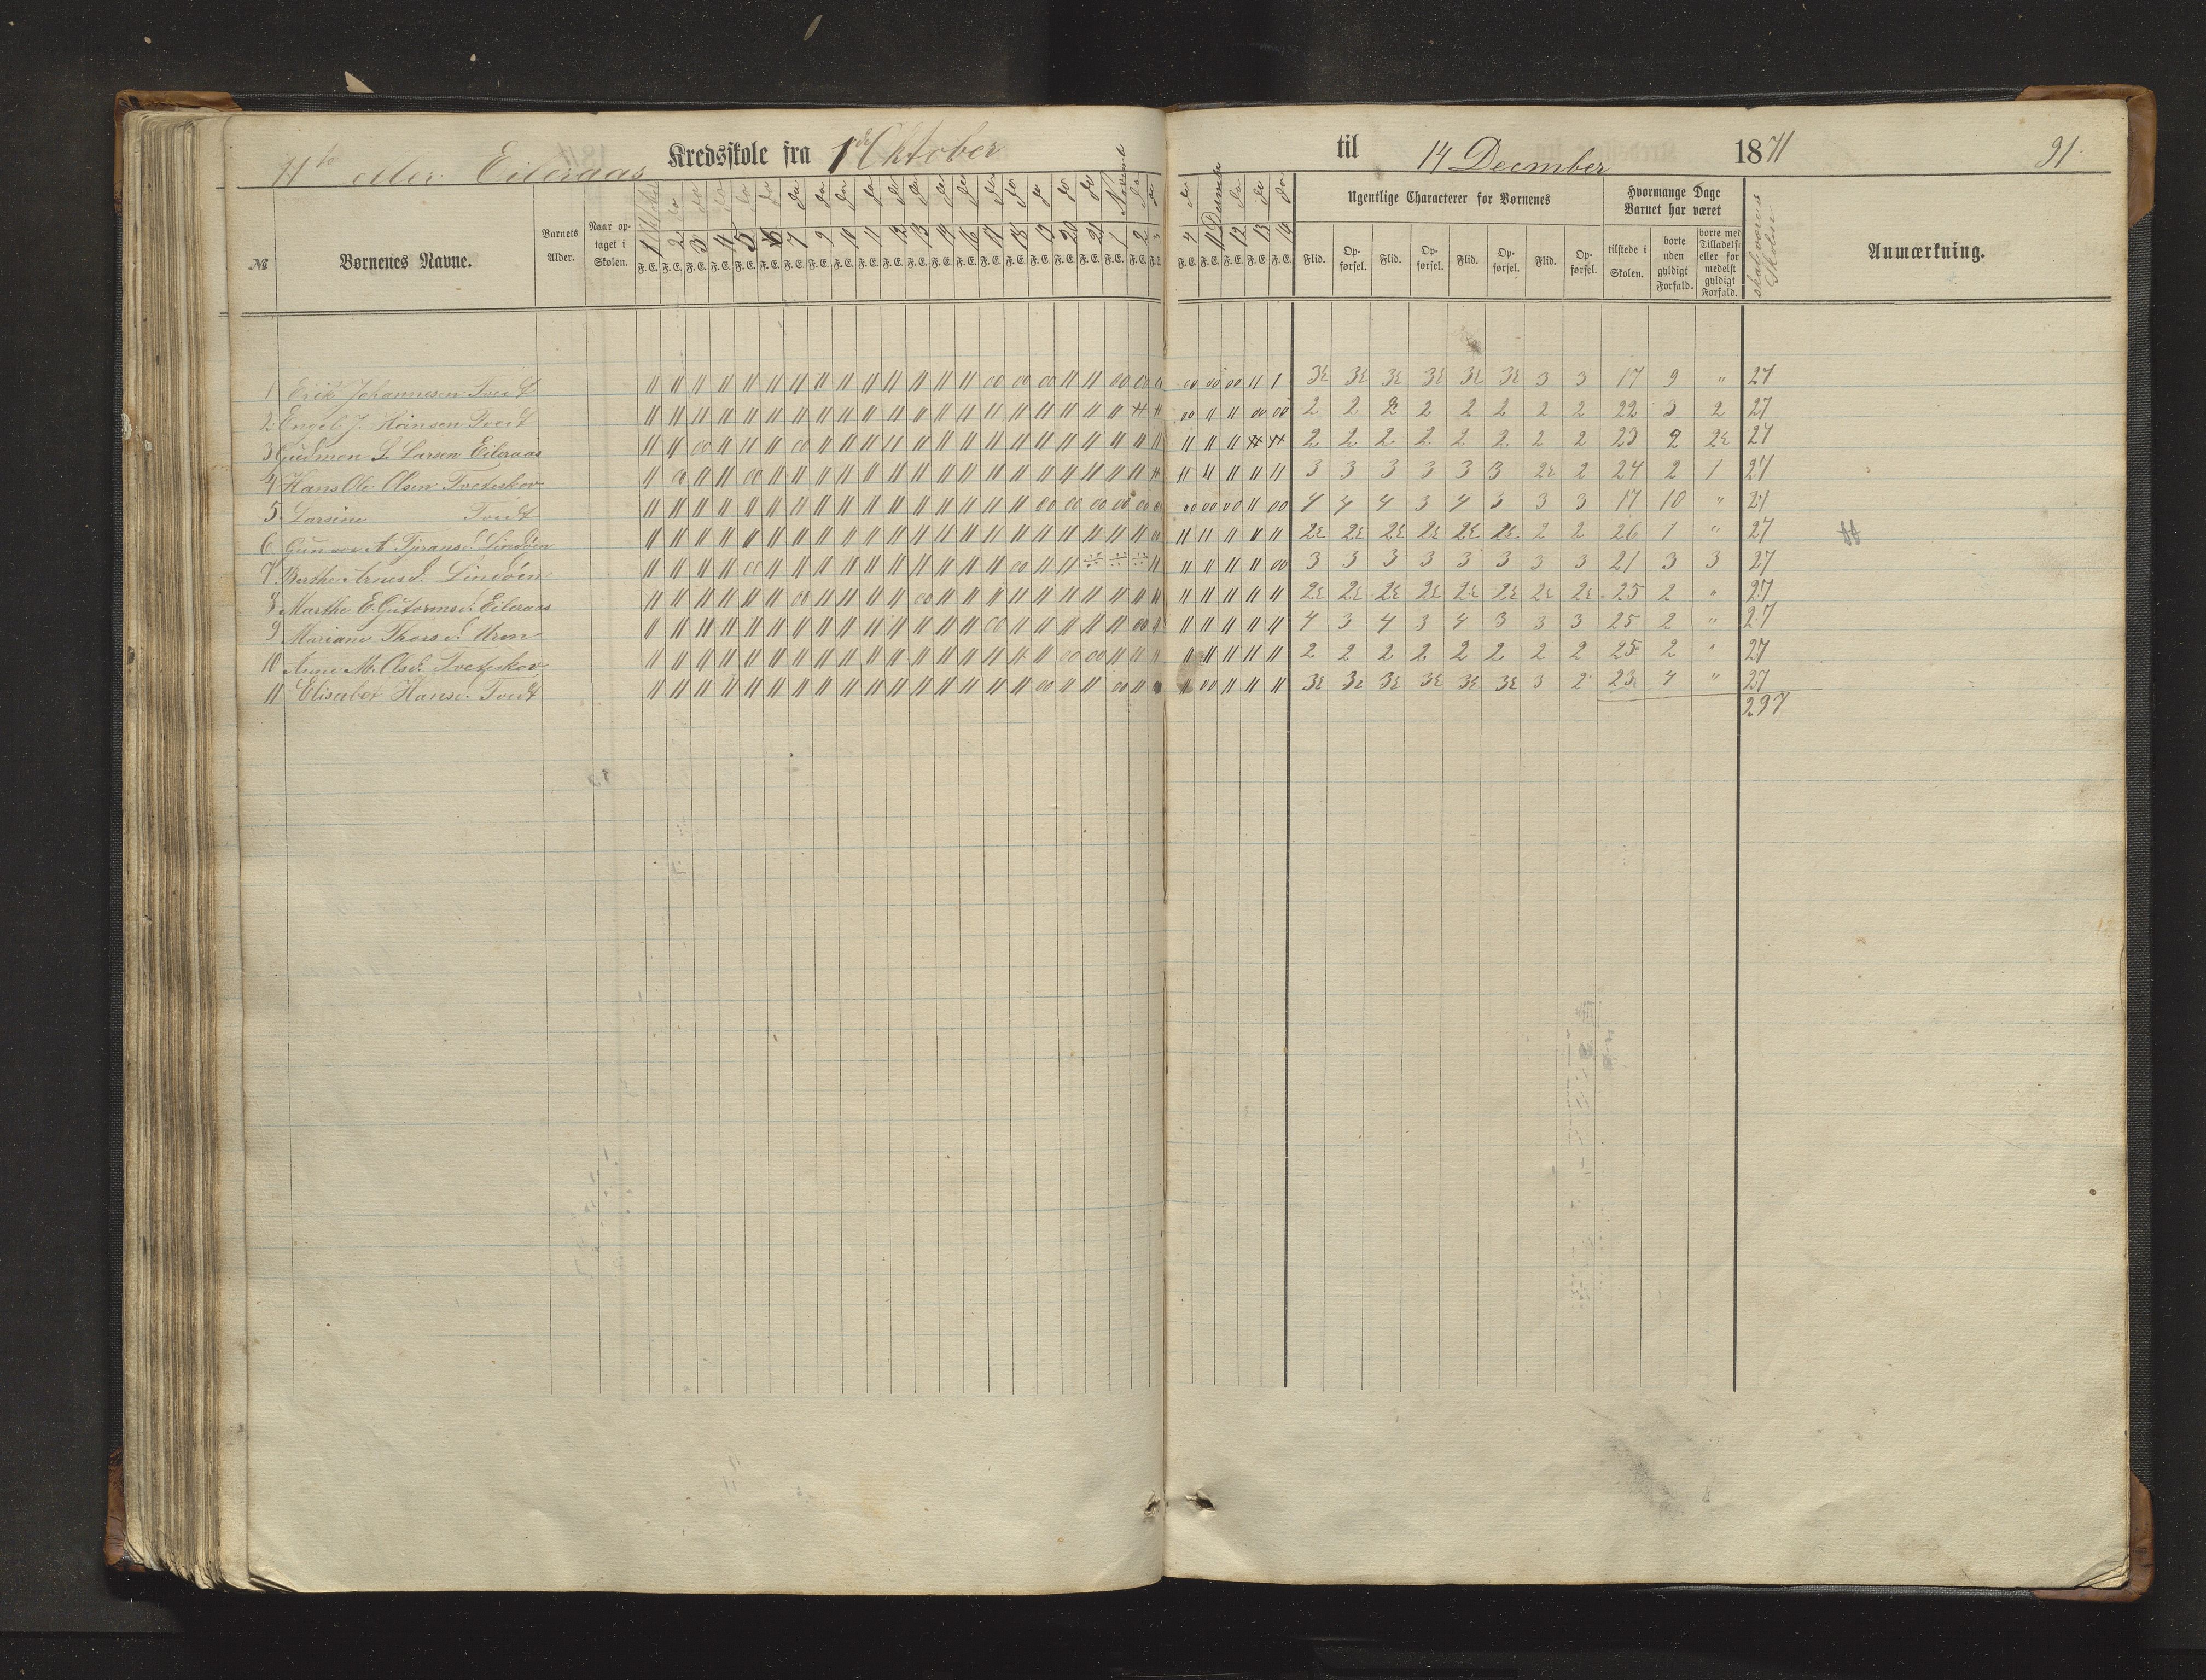 4de eller Eileraas Kredsskole fra 1de Oktober til 14 December 1871 91.
№ Børnenes Navne. Barnets Alder. Naar optaget i Skolen. Ugentlige Characterer for Børnenes Hvormange Dage Barnet har været skal være i Skolen Anmærkning.
1 2 3 4 5 6 7 9 10 11 12 13 14 16 17 18 19 20 21 1 2 3 4 11 12 13 14
F. E.
Flid. Opførsel. Flid. Opførsel. Flid. Opførsel. Flid. Opførsel. tilstede i Skolen. borte uden gyldigt Forfald. borte med Tilladelse eller formedelst gyldigt Forfald.
1 Erik Johannesen Tvedt 3½ 3½ 3½ 3½ 3½ 3½ 3 3 17 9 " 27
2 Engel J. Hansen Tvedt 2 2 2 2 2 2 2 2 22 3 2 27
3 Gudmon L. Larsen Eileraas 2 2 2 2 2 2 2 2 23 2 2½ 27
4 Hans Ole Olsen Tveteskov 3 3 3 3 3 3 2½ 2 24 2 1 27
5 Larsine Tvedt 4 4 4 3 4 3 3 3 17 10 " 27
6 Gunvor A. Lindøen 2½ 2½ 2½ 2½ 2½ 2½ 2 2 26 1 " 27
7 Berthe Arnesd. Lindøen 3 3 3 3 3 3 3 3 21 3 3 27
8 Marthe E. Gutormsd. Eileraas 2½ 2½ 2½ 2½ 2½ 2½ 2½ 2½ 25 2 " 27
9 Mariane Thorsd. Uren 4 3 4 3 4 3 3 3 25 2 " 27
10 Anne M. Olsd. Tveteskov 2 2 2 2 2 2 2 2 25 2 " 27
11 Elisabet Hansd. Tvedt 3½ 3½ 3½ 3½ 3½ 3½ 3 2 23 4 " 27
297